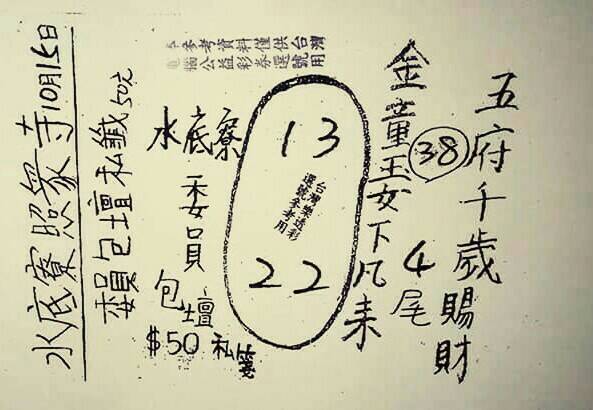 五府千歲賜財
4尾
金童玉女下凡來
38
本參考資料僅供台灣
電腦公益彩券選號用
13
台灣樂透彩
選號參考用
22
水底寮
委員
包壇
$50 私箋
委員包壇私籤50元
水底寮照眾寺10月15日